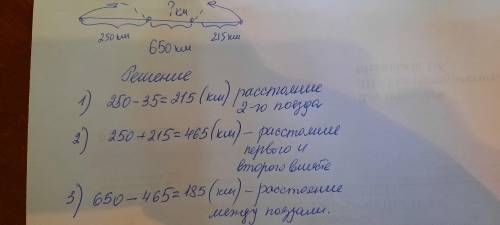 ? км
250 км
215 км
650 км
Решение
1) 250 - 35 = 215 (км) расстояние
2-го поезда
2) 250 + 215 = 465 (км) - расстояние
первого и
второго вместе
3) 650 - 465 = 185 (км) - расстояние
между поездами.